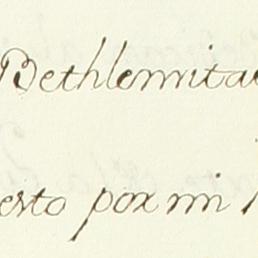 Bethlemita
esto por mi